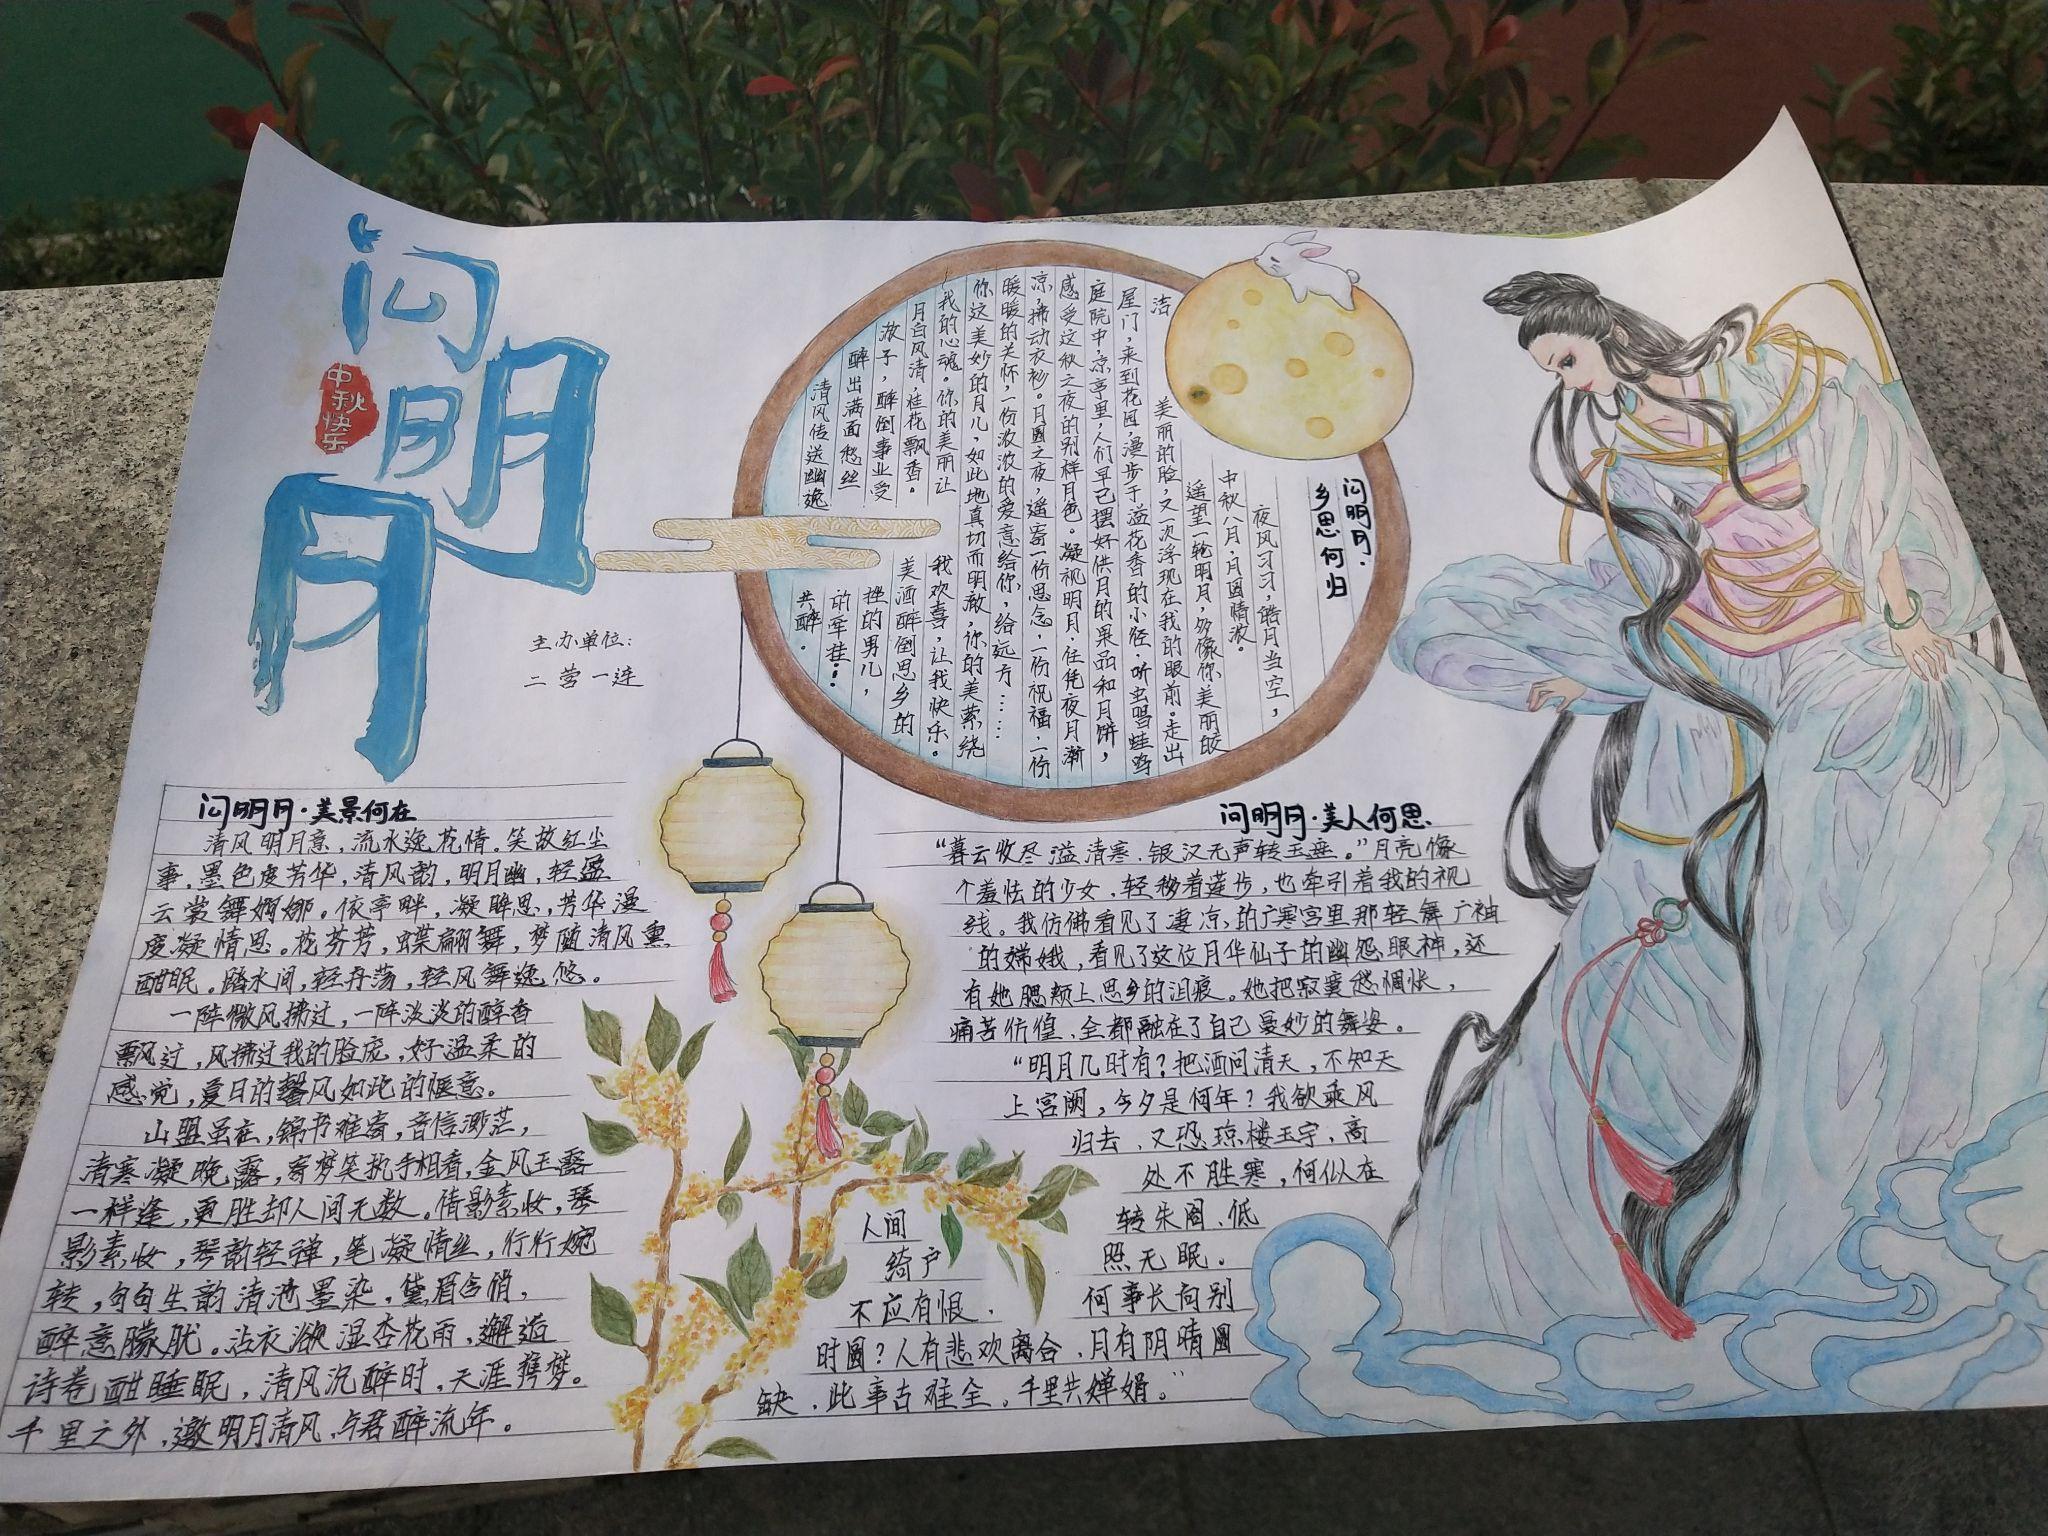 问明月
中秋快乐
主办单位：
二营一连
问明月·美景何在
清风明月意，流水逸花情。笑故红尘
事，墨色度芳华，清风韵，明月幽，轻盈
云裳舞婀娜。依亭畔，凝眸思，芳华漫
度凝情思。花芬芳，蝶翩舞，梦随清风熏
酣眠。踏水间，轻舟荡，轻风舞悠悠。
一阵微风拂过，一阵淡淡的醇香
飘过，风拂过我的脸庞，好温柔的
感觉，夏日的馨风如此的惬意。
山盟虽在，锦书难寄，音信渺茫，
清寒凝晚露，寄梦笑执手相看，金风玉露
一样逢，更胜却人间无数。倩影素妆，琴
影素妆，琴韵轻弹，笔凝情丝，行行婉
转，句句生韵清池墨染，黛眉含俏，
醉意朦胧。沾衣欲湿杏花雨，邂逅
诗卷酣睡眠，清风沉醉时，天涯携梦。
千里之外，邀明月清风，与君醉流年。
问明月·
乡思何归
夜风习习，皓月当空，
中秋八月，月圆情浓。
遥望一轮明月，多像你美丽皎
洁
美丽的脸，又一次浮现在我的眼前。走出
屋门，来到花园，漫步于溢花香的小径，听虫唱蛙鸣
庭院中，凉亭里，人们早已摆好供月的果品和月饼，
感受这秋之夜的别样月色。凝视明月，任凭夜月渐
凉，拂动衣衫。月圆之夜，遥寄一份思念，一份祝福，一份
暖暖的关怀，一份浓浓的爱意给你，给远方……
你这美妙的月儿，如此地真切而明澈，你的美萦绕
我的心魂。你的美丽让
我欢喜，让我快乐。
月白风清，桂花飘香。
美酒醉倒思乡的
浓子，醉倒事业受
挫的男儿，
醉出满面愁丝
的牵挂！
清风传送幽逸
共醉．
问明月·美人何思
“暮云收尽溢清寒，银汉无声转玉垂。”月亮像
个羞怯的少女，轻移着莲步，也牵引着我的视
线。我仿佛看见了凄凉的广寒宫里那轻舞广袖
的嫦娥，看见了这位月华仙子的幽怨眼神，还
有她腮颊上思乡的泪痕。她把寂寞愁惆怅，
痛苦彷徨、全都融在了自己曼妙的舞姿。
“明月几时有？把酒问清天，不知天
上宫阙，今夕是何年？我欲乘风
归去，又恐琼楼玉宇，高
处不胜寒，何似在
人间
转朱阁、低
绮户
照无眠。
不应有恨，
何事长向别
时圆？人有悲欢离合，月有阴晴圆
缺，此事古难全，千里共婵娟。”